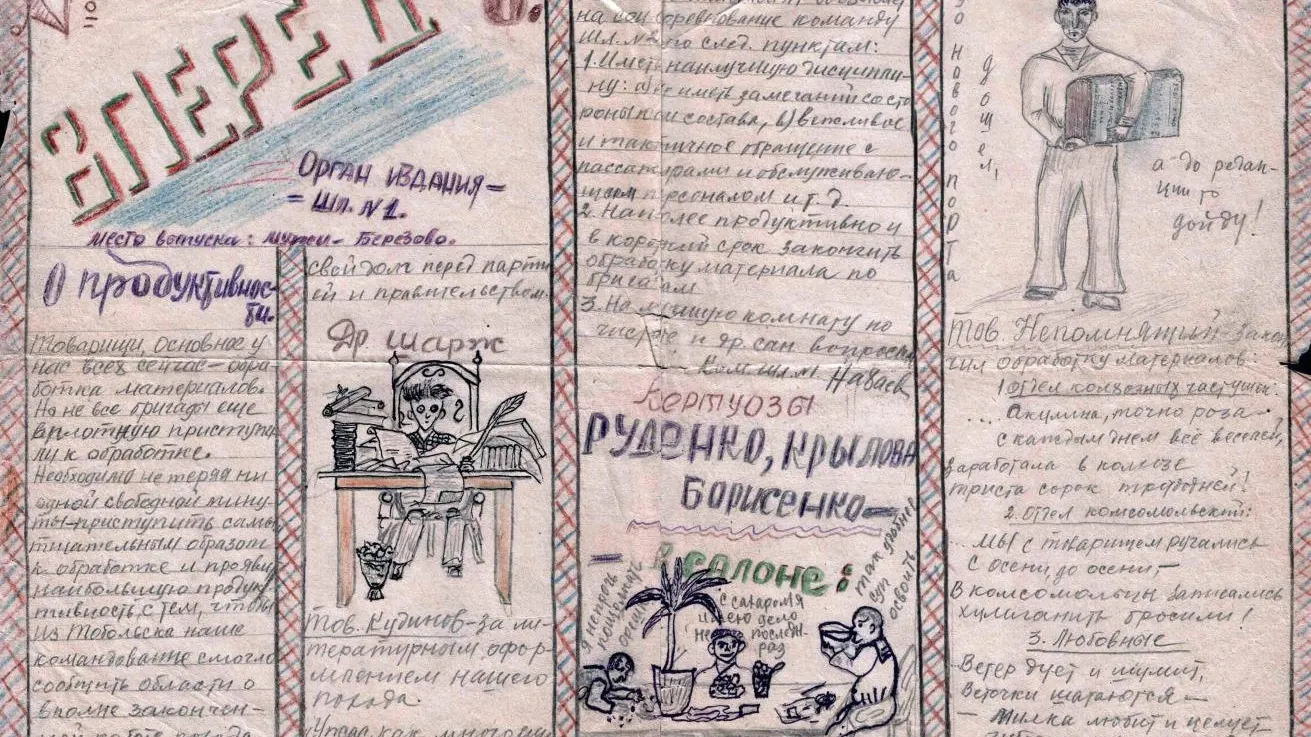 ВПЕРЕД
Орган издания –
= Шл. №1.
место выпуска: Мужи – Березово.
О продуктивнос-
ти.
Товарищи, основное у
нас всех сейчас – обра-
ботка материалов.
Но не все бригады еще
вплотную приступи
ли к обработке.
Необходимо не теряя ни
одной свободной мину-
ты – приступить самы
тщательным образом
к обработке и проявить
наибольшую продук
тивность с тем, чтобы
из Тобольска наше
командование смогло
сообщить области о
вполне закончен-
свой долг перед парти
ей и правительством.
Др. шарж
Тов. Кудинов – за ли-
тературным офор-
млением нашего
похода.
на соц соревнование команду
Шл. №2 по след. пунктам:
1. Иметь наилучшую дисципли-
ну: а) не иметь замечаний со сто
роны ком состава, в) вежливое
и тактичное обращение с
пассажирами и обслуживаю-
щем персоналом и т. д.
2. Наиболее продуктивно и
в короткий срок закончить
обработку материала по
бригадам
3. На лучшую комнату по
чистоте и др. сан. вопросам
Ком шлм
РУДЕНКО, КРЫЛОВА
Борисенко –
– В салоне:
с сахаром я
имею дело
послед.
раз
так удобнее
суп
освоить
до нового порта
дошел,
а до редак-
ции то
дойду!
Тов. Непомнящий закон
чил обработку материалов:
1. Отдел колхозных частушек:
... Акулина, точно роза –
с каждым днем всё веселей,
Заработала в колхозе
триста сорок трудодней!
2. Отдел комсомольский:
... Мы с товарищем ругались
С осени, до осени, –
В комсомольцы записались
Хулиганить бросили!
3. Любовные
– Ветер дует и шумит,
Веточки шатаются –
– Милка любит и целует